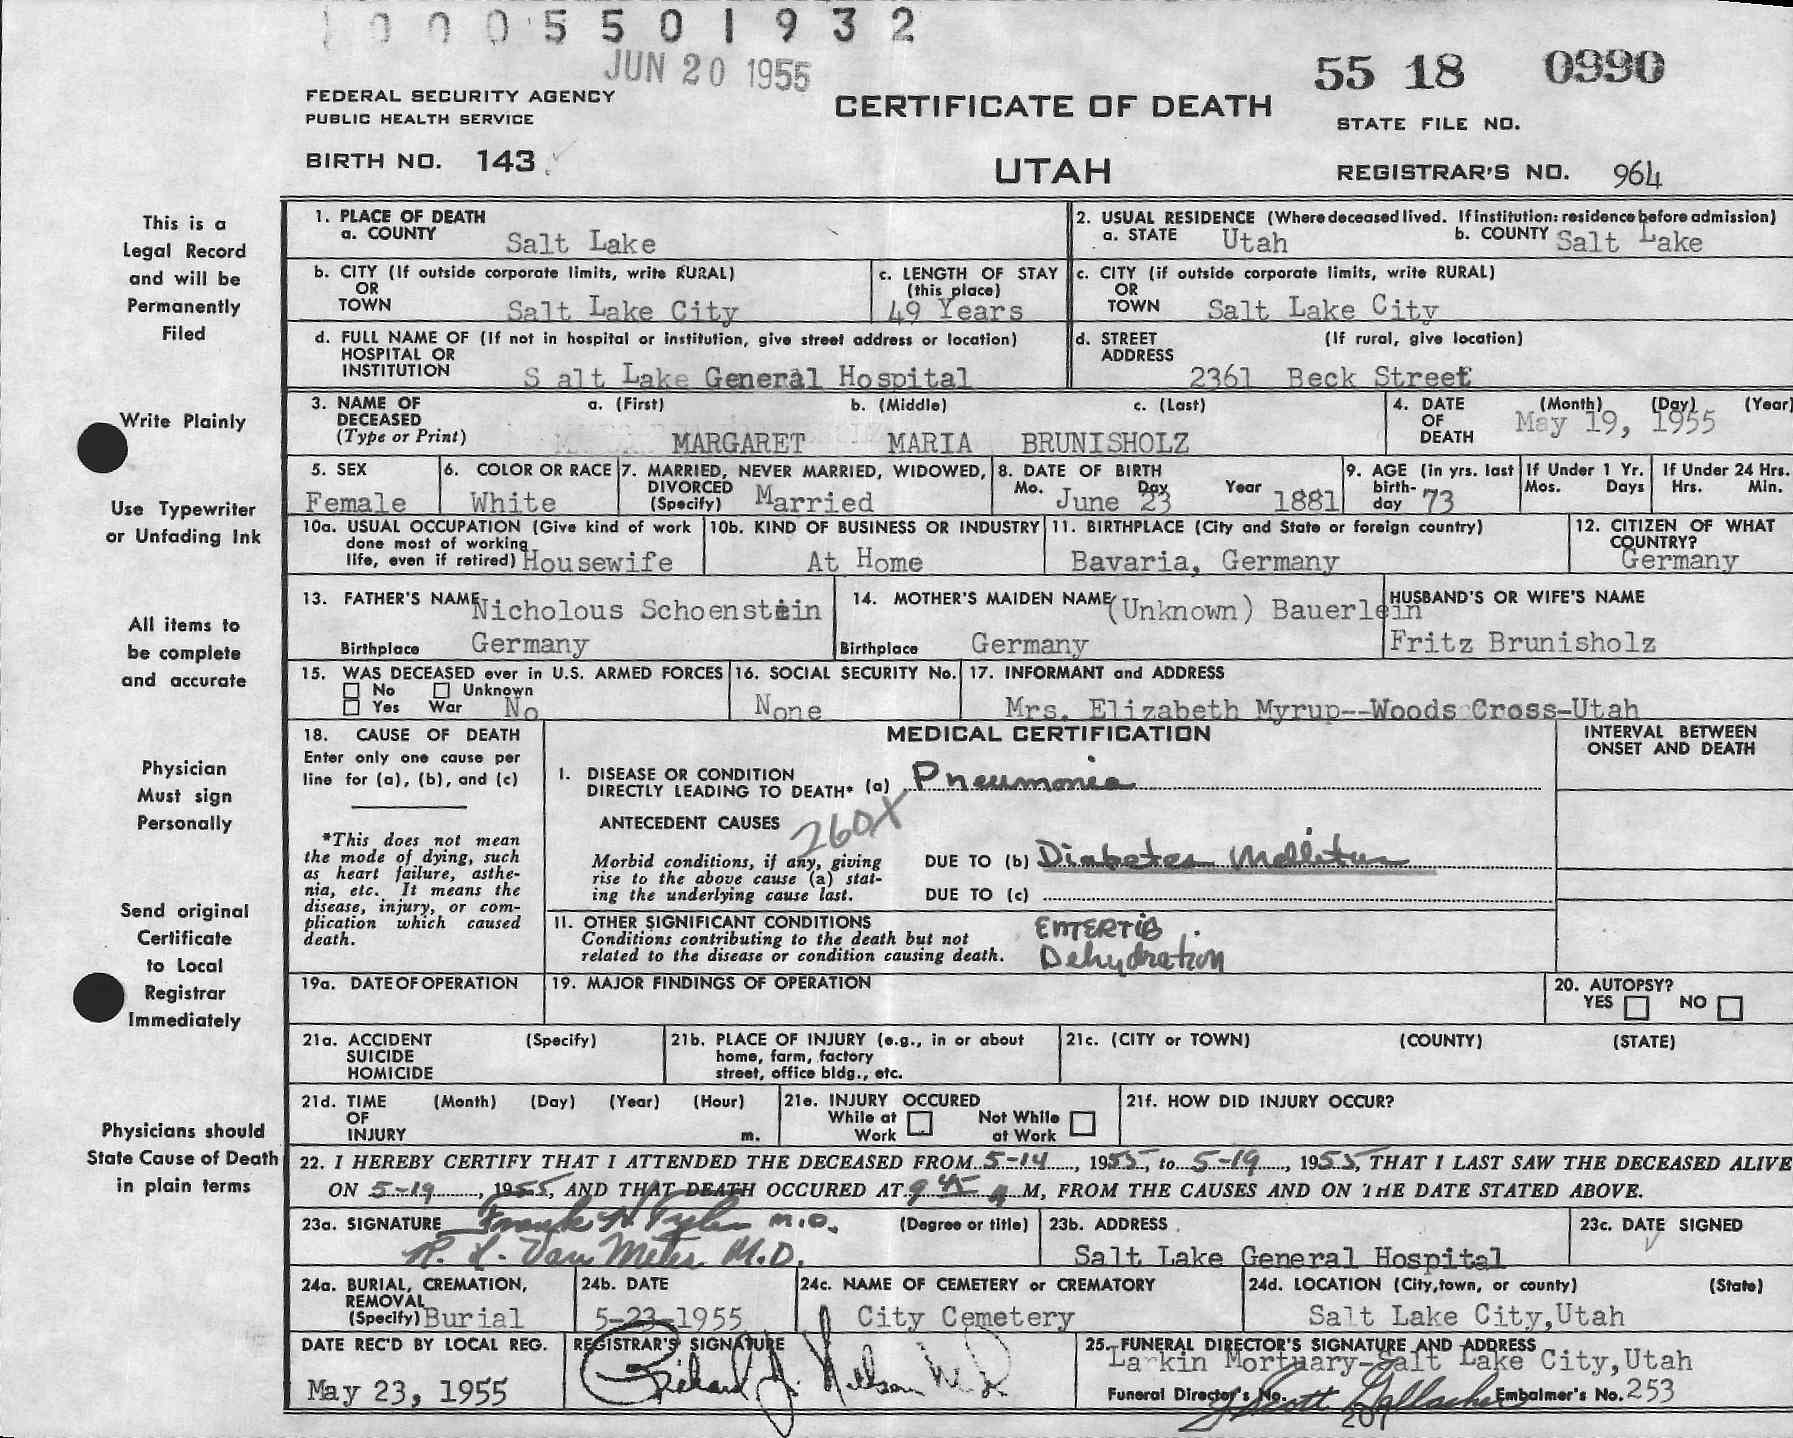 0005501932
JUN 20 1955
55 18 0990
FEDERAL SECURITY AGENCY
PUBLIC HEALTH SERVICE
CERTIFICATE OF DEATH
STATE FILE NO.
BIRTH NO. 143
UTAH
REGISTRAR'S NO. 964
This is a
Legal Record
and will be
Permanently
Filed
Write Plainly
Use Typewriter
or Unfading Ink
All items to
be complete
and accurate
Physician
Must sign
Personally
Send original
Certificate
to Local
Registrar
Immediately
Physicians should
State Cause of Death
in plain terms
1. PLACE OF DEATH
a. COUNTY Salt Lake
2. USUAL RESIDENCE (Where deceased lived. If institution: residence before admission)
a. STATE Utah b. COUNTY Salt Lake
b. CITY (If outside corporate limits, write RURAL)
OR
TOWN Salt Lake City
c. LENGTH OF STAY
(this place)
49 Years
c. CITY (if outside corporate limits, write RURAL)
OR
TOWN Salt Lake City
d. FULL NAME OF (If not in hospital or institution, give street address or location)
HOSPITAL OR
INSTITUTION S alt Lake General Hospital
d. STREET (If rural, give location)
ADDRESS
2361 Beck Street
3. NAME OF a. (First) b. (Middle) c. (Last)
DECEASED
(Type or Print) MARGARET MARIA BRUNISHOLZ
4. DATE (Month) (Day) (Year)
OF
DEATH May 19, 1955
5. SEX
Female
6. COLOR OR RACE
White
7. MARRIED, NEVER MARRIED, WIDOWED,
DIVORCED
(Specify) Married
8. DATE OF BIRTH
Mo. Day Year
June 23 1881
9. AGE (in yrs. last
birth-
day 73
If Under 1 Yr.
Mos. Days
If Under 24 Hrs.
Hrs. Min.
10a. USUAL OCCUPATION (Give kind of work
done most of working
life, even if retired) Housewife
10b. KIND OF BUSINESS OR INDUSTRY
At Home
11. BIRTHPLACE (City and State or foreign country)
Bavaria, Germany
12. CITIZEN OF WHAT
COUNTRY?
Germany
13. FATHER'S NAME Nicholous Schoenstein
Birthplace Germany
14. MOTHER'S MAIDEN NAME (Unknown) Bauerlein
Birthplace Germany
HUSBAND'S OR WIFE'S NAME
Fritz Brunisholz
15. WAS DECEASED ever in U.S. ARMED FORCES
No Unknown
Yes War No
16. SOCIAL SECURITY No.
None
17. INFORMANT and ADDRESS
Mrs. Elizabeth Myrup--Woods Cross-Utah
18. CAUSE OF DEATH
Enter only one cause per
line for (a), (b), and (c)
*This does not mean
the mode of dying, such
as heart failure, asthe-
nia, etc. It means the
disease, injury, or com-
plication which caused
death.
MEDICAL CERTIFICATION
INTERVAL BETWEEN
ONSET AND DEATH
I. DISEASE OR CONDITION
DIRECTLY LEADING TO DEATH* (a) Pneumonia
ANTECEDENT CAUSES 260X
Morbid conditions, if any, giving
rise to the above cause (a) stat-
ing the underlying cause last.
DUE TO (b) Diabetes Mellitus
DUE TO (c)
II. OTHER SIGNIFICANT CONDITIONS
Conditions contributing to the death but not
related to the disease or condition causing death.
Dehydration
19a. DATE OF OPERATION
19. MAJOR FINDINGS OF OPERATION
20. AUTOPSY?
YES NO
21a. ACCIDENT (Specify)
SUICIDE
HOMICIDE
21b. PLACE OF INJURY (e.g., in or about
home, farm, factory
street, office bldg., etc.
21c. (CITY or TOWN) (COUNTY) (STATE)
21d. TIME (Month) (Day) (Year) (Hour)
OF
INJURY m.
21e. INJURY OCCURED
While at Not While
Work at Work
21f. HOW DID INJURY OCCUR?
22. I HEREBY CERTIFY THAT I ATTENDED THE DECEASED FROM 5-14, 1955, to 5-19, 1955, THAT I LAST SAW THE DECEASED ALIVE
ON 5-19, 1955, AND THAT DEATH OCCURED AT 9 45 A M, FROM THE CAUSES AND ON THE DATE STATED ABOVE.
23a. SIGNATURE Frank H Tyler M.D. (Degree or title)
R. L. Van Meter M.D.
23b. ADDRESS
Salt Lake General Hospital
23c. DATE SIGNED
24a. BURIAL, CREMATION,
REMOVAL
(Specify) Burial
24b. DATE
5-23-1955
24c. NAME OF CEMETERY or CREMATORY
City Cemetery
24d. LOCATION (City, town, or county) (State)
Salt Lake City, Utah
DATE REC'D BY LOCAL REG.
May 23, 1955
REGISTRAR'S SIGNATURE
Richard J. Nelson M D
25. FUNERAL DIRECTOR'S SIGNATURE AND ADDRESS
Larkin Mortuary-Salt Lake City, Utah
Funeral Director's No. Scott Gallacher Embalmer's No. 253
201